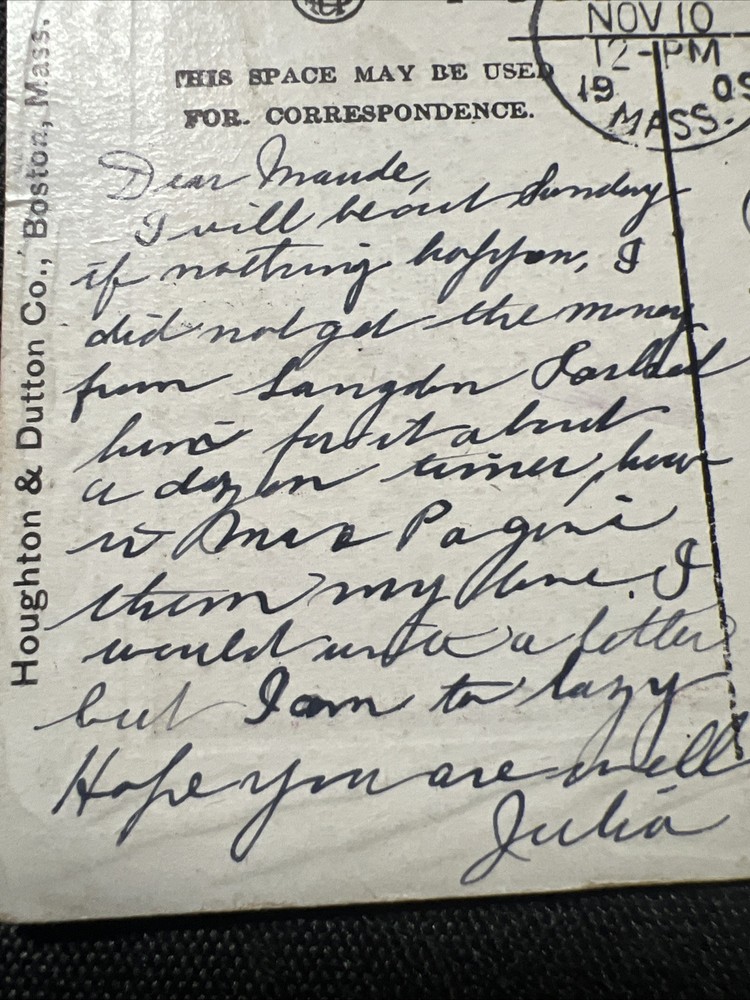 Houghton & Dutton Co., Boston, Mass.
NOV 10
12-PM
19 09
MASS.
THIS SPACE MAY BE USED
FOR. CORRESPONDENCE.
Dear Maude,
I will be out Sunday
if nothing happen, I
did not get the money
from Langdon I asked
him for it about
a dozen times, how
is Ma & Pa give
them my love. I
would write a letter
but I am to lazy
Hope you are well
Julia